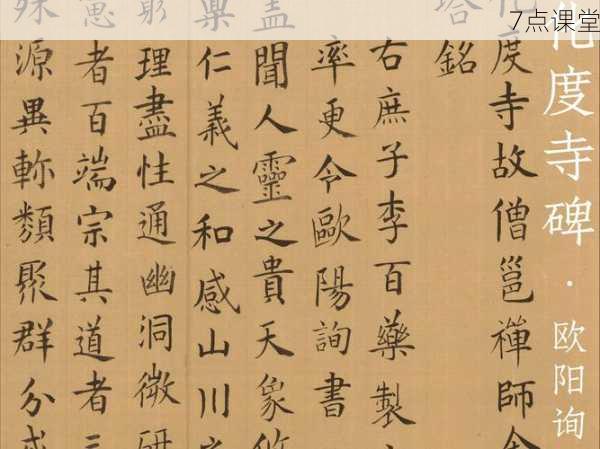 7点课堂
化度寺碑·欧阳询
化度寺故僧邕禪師舍
塔銘
右庶子李百藥製
率更令歐陽詢書
蓋聞人靈之貴天象攸
稟仁義之和感山川之
理盡性通幽洞微研
者百端宗其道者三
殊源異軫類聚群分或